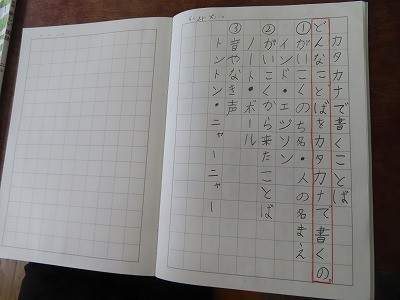 カタカナで書くことば
どんなことばをカタカナで書くの。
①がいこくのち名・人の名まえ
インド・エジソン
②がいこくから来たことば
ノート・ボール
③音やなき声
トントン・ニャーニャー